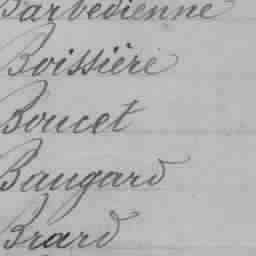 Barbedienne
Boissière
Boucet
Baugard
Brard